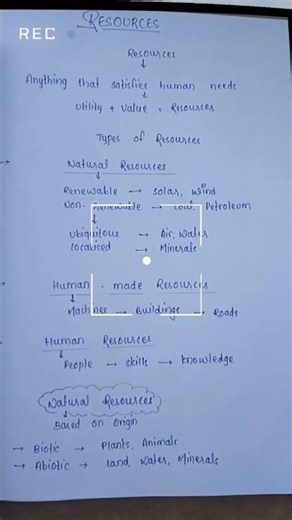 REC
RESOURCES
Resources
Anything that satisfies human needs
Utility + Value = Resources
Types of Resources
→ Natural Resources
Renewable → Solar, Wind
Non-Renewable → Coal, Petroleum
Ubiquitous → Air, Water
Localised → Minerals
Human-made Resources
Machines → Buildings → Roads
Human Resources
People → skills → knowledge
Natural Resources
Based on Origin
→ Biotic → Plants, Animals
→ Abiotic → Land, Water, Minerals